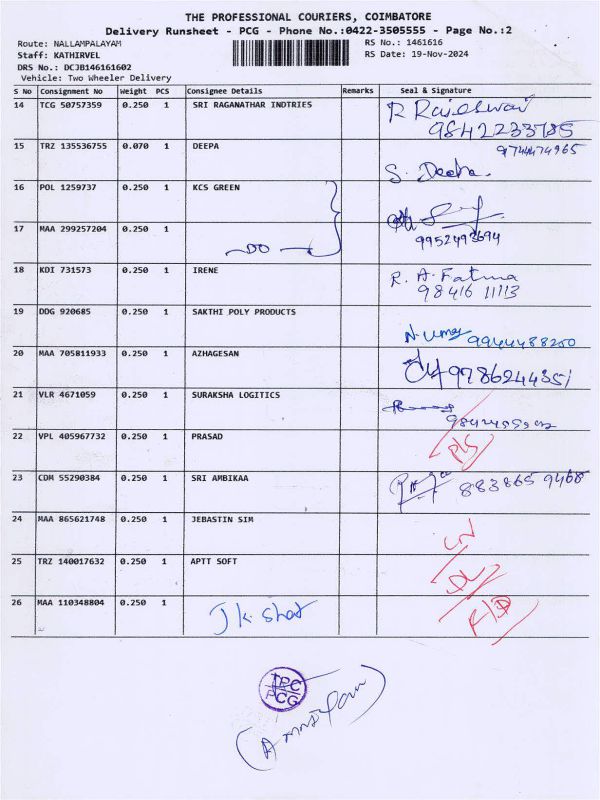 THE PROFESSIONAL COURIERS, COIMBATORE
Delivery Runsheet - PCG - Phone No.:0422-3505555 - Page No.:2
Route: NALLAMPALAYAM RS No.: 1461616
Staff: KATHIRVEL RS Date: 19-Nov-2024
DRS No.: DCJB146161602
Vehicle: Two Wheeler Delivery
S No Consignment No Weight PCS Consignee Details Remarks Seal & Signature
14 TCG 50757359 0.250 1 SRI RAGANATHAR INDTRIES R Rajeswari
9842233785
15 TRZ 135536755 0.070 1 DEEPA 9744474965
S. Deepa.
16 POL 1259737 0.250 1 KCS GREEN
17 MAA 299257204 0.250 1
DO 9952493694
18 KDI 731573 0.250 1 IRENE R. A. Fatima
98416 11113
19 DDG 920685 0.250 1 SAKTHI POLY PRODUCTS
N. Uma 9944488250
20 MAA 705811933 0.250 1 AZHAGESAN 9786244351
21 VLR 4671059 0.250 1 SURAKSHA LOGITICS
22 VPL 405967732 0.250 1 PRASAD
23 CDM 55290384 0.250 1 SRI AMBIKAA 883865 9468
24 MAA 865621748 0.250 1 JEBASTIN SIM
25 TRZ 140017632 0.250 1 APTT SOFT
26 MAA 110348804 0.250 1 J k. Shat
PCG